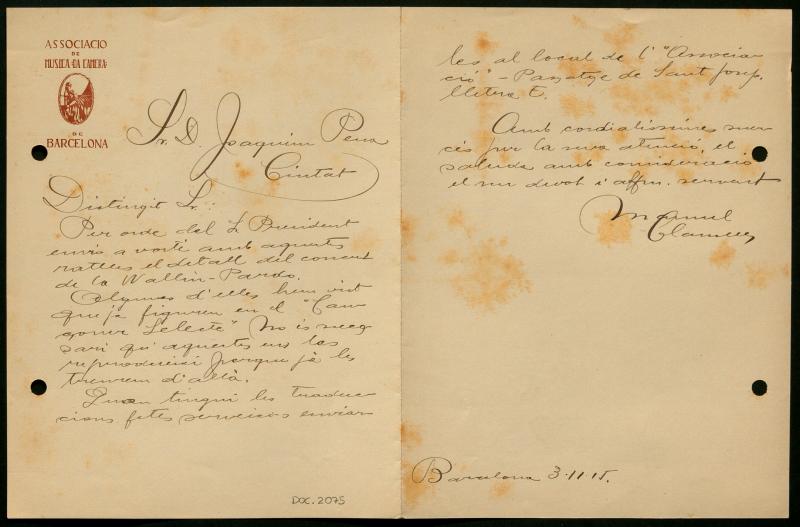 ASSOCIACIO
DE
MUSICA·DA CAMERA·
DE
BARCELONA
Sr. D. Joaquim Pena
Ciutat
Distingit Sr.:
Per orde del Sr President
envio a vosté amb aquestes
ratlles el detall del concert
de la Wallin-Pardo.
Algunes d'elles hem vist
que ja figuren en el "Can-
çoner Selecte" No és neces-
sari qu' aquestes ens les
reprodueixi porque jà les
treurem d'allà.
Quan tingui les traduc-
cions fetes serveixis enviar-
les al local de l' "Associa-
ció" - Passatge de Sant Josep,
lletra E.
Amb cordialissimes mer-
cés per la seva atenció, el
saluda amb consideració
el seu devot i affm. servent
Manuel
Clausells
Barcelona 3-11-15.
DOC. 2075